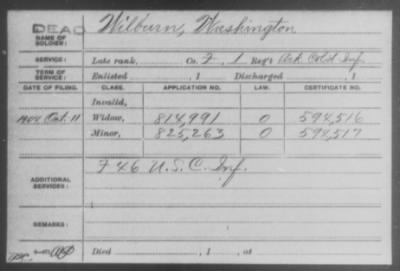 DEAD
NAME OF SOLDIER: Wilburn, Washington
SERVICE: Late rank, Co. F, 1 Reg't Ark Cold Inf.
TERM OF SERVICE: Enlisted , 1 Discharged , 1
DATE OF FILING. CLASS. APPLICATION NO. LAW. CERTIFICATE NO.
Invalid,
1904 Oct. 11 Widow, 814,991 O 594,516
Minor, 825,263 O 594,517
ADDITIONAL SERVICES: F 46 U.S.C. Inf.
REMARKS:
Died , 1 , at